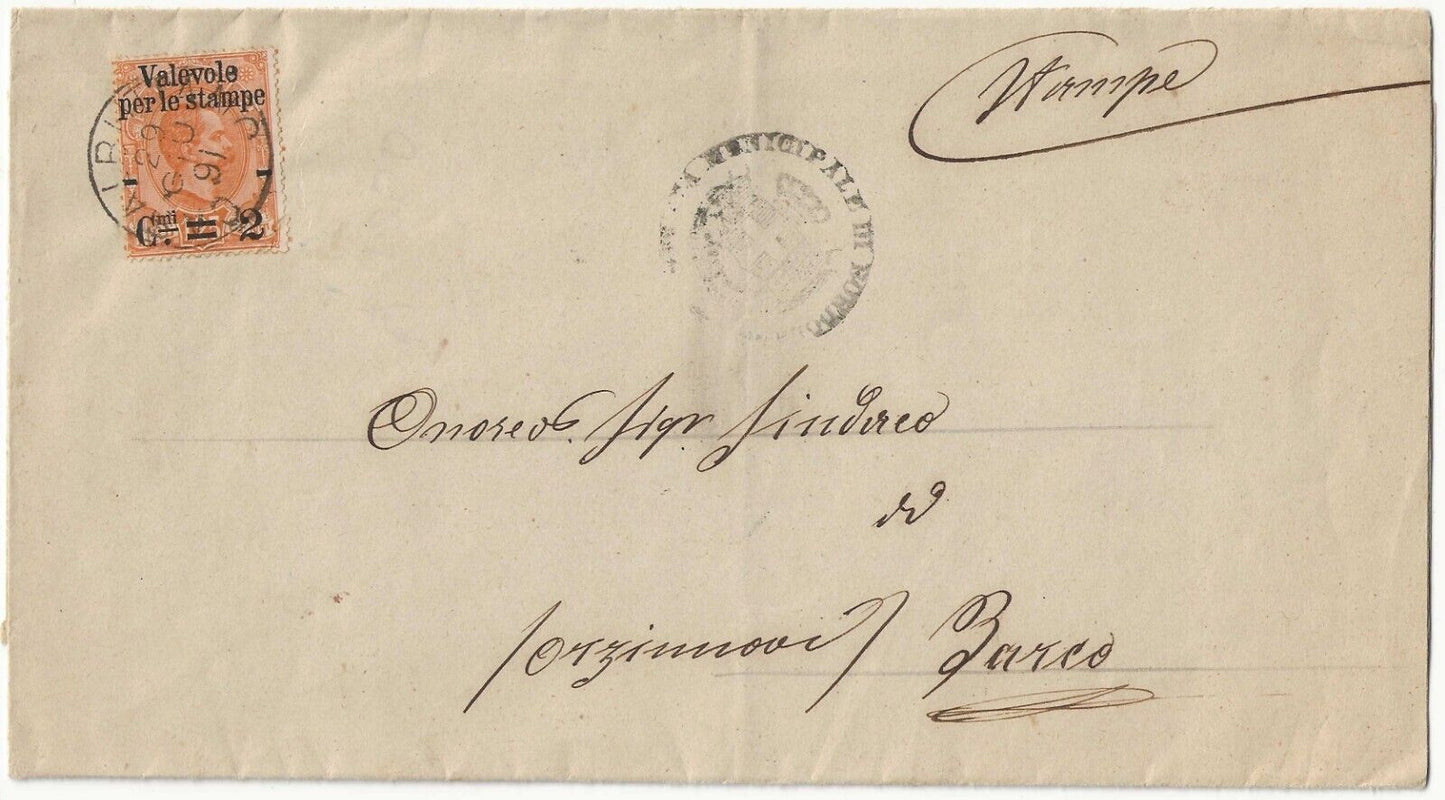 Valevole
per le stampe
Cmi 2
29
91
Stampe
MUNICIPALE DI
Onorevo. Sigr. Sindaco
di
(Orzinnovi) Barco